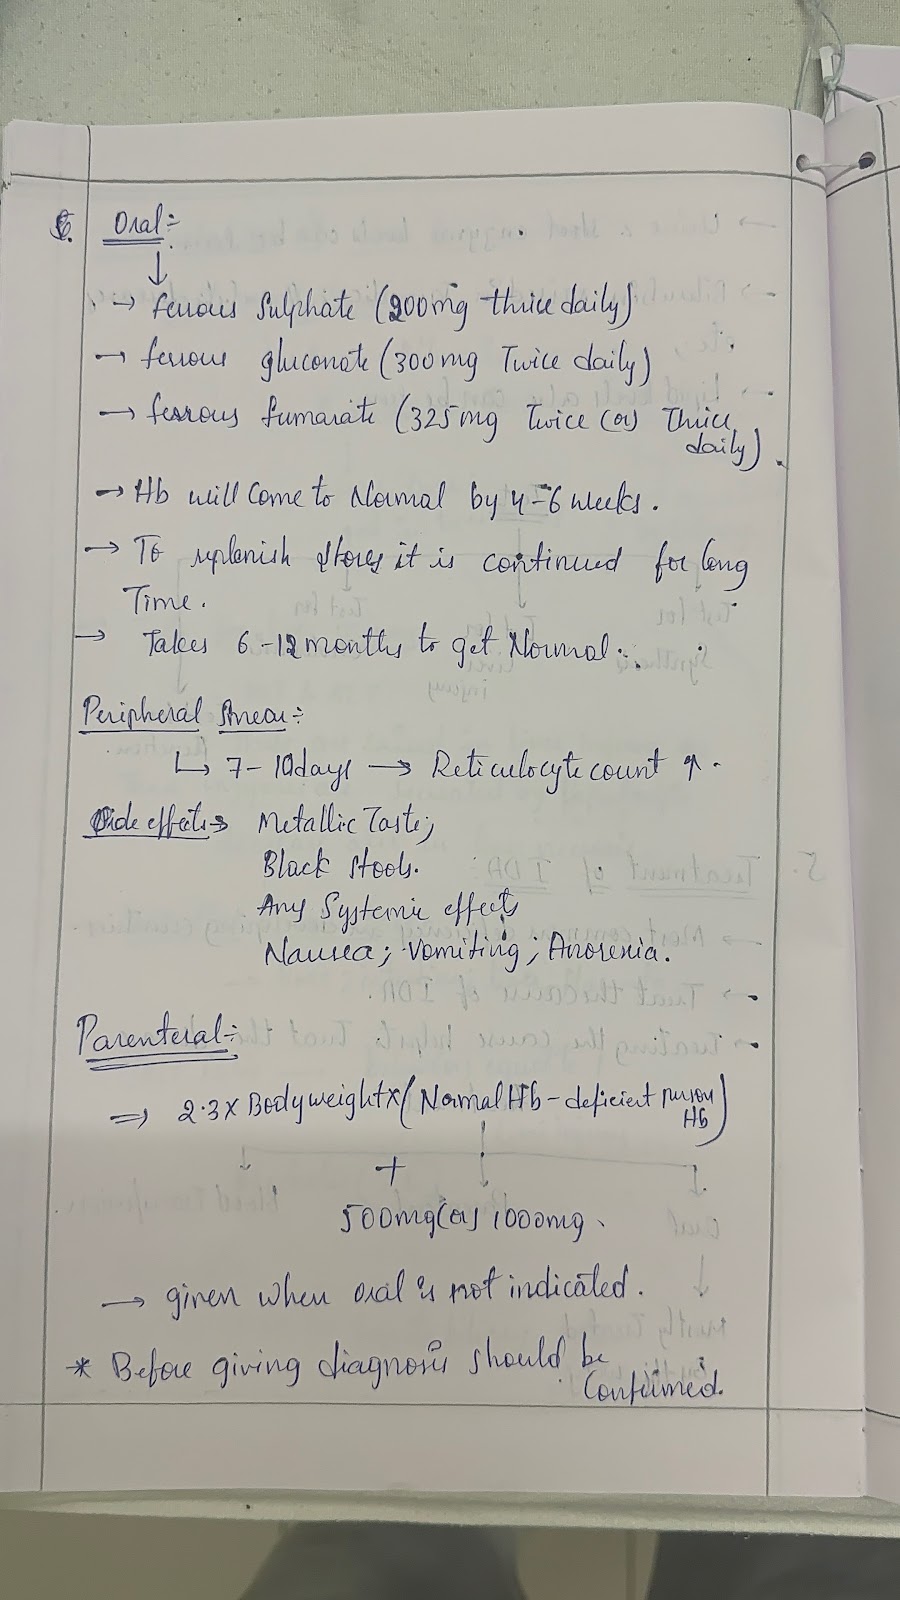 6. Oral:-
↓
→ ferrous Sulphate (200mg thrice daily)
→ ferrous gluconate (300mg Twice daily)
→ ferrous fumarate (325mg Twice (or) Thrice
daily).
→ Hb will come to Normal by 4-6 weeks.
→ To replenish stores it is continued for long
Time.
→ Takes 6-12 months to get Normal.
Peripheral Smear:-
↳ 7-10days → Reticulocyte count ↑.
Side effects → Metallic Taste;
Black stools.
Any Systemic effects
Nausea; Vomiting; Anorexia.
Parenteral:-
⇒ 2.3 x Body weight x (Normal Hb - deficient person
Hb)
+
500mg (or) 1000mg.
→ given when oral is not indicated.
* Before giving diagnosis should be
Confirmed.